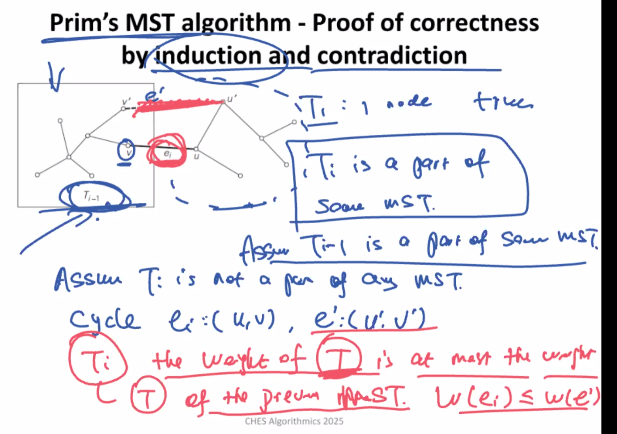 Prim's MST algorithm - Proof of correctness
by induction and contradiction
e'
v' u'
v e_i u
T_{i-1}
T_1 : 1 node tree
T_i is a part of
some MST.
Assum T_{i-1} is a part of some MST.
Assum T_i is not a par of any MST.
Cycle e_i : (u, v), e' : (u', v')
T_i the weight of T is at most the weight
T of the previous MST. W(e_i) ≤ w(e')
CHES Algorithmics 2025